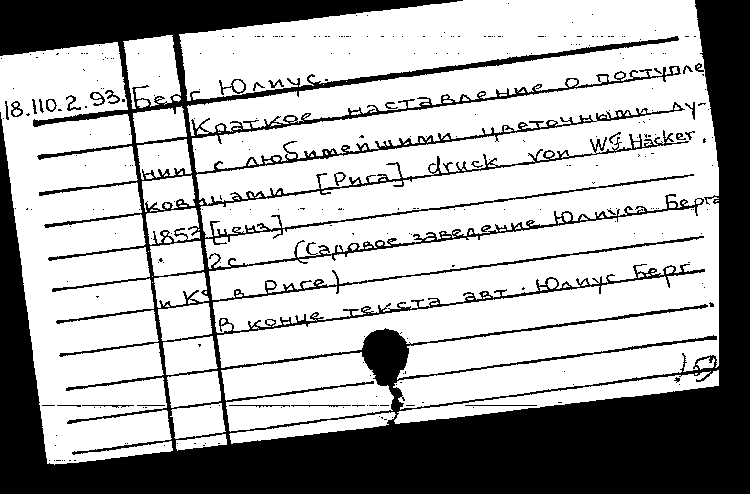 18.110.2.93. Берг Юлиус.
Краткое наставление о поступле
нии с любимейшими цветочными лу-
ковицами. [Рига], druck von W.F. Häcker.
1852 [ценз].
2с. (Садовое заведение Юлиуса Берга
и К° в Риге)
В конце текста авт.: Юлиус Берг